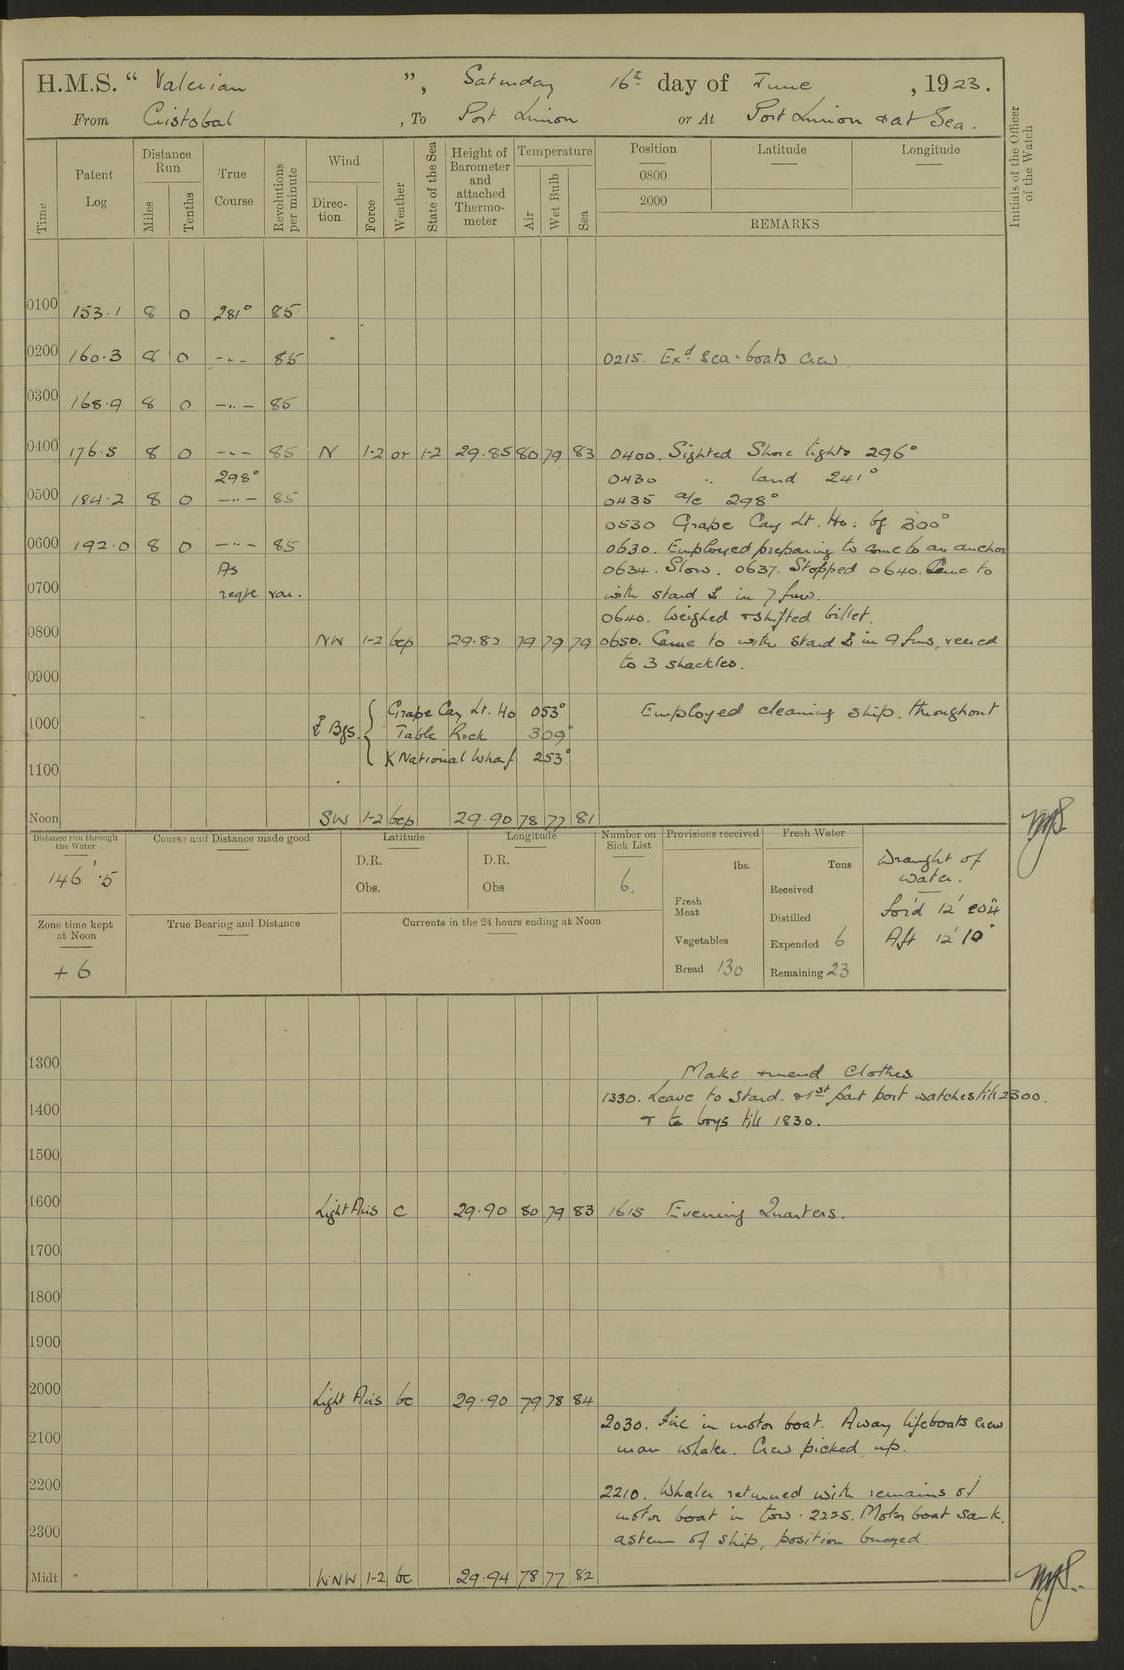 H.M.S. “ Valerian ”, Saturday 16th day of June , 1923.
From Cristobal , To Port Limon or At Port Limon & at Sea.
Time Patent Log Distance Run Miles Tenths True Course Revolutions per minute Wind Direction Force Weather State of the Sea Height of Barometer and attached Thermometer Temperature Air Wet Bulb Sea Position 0800 2000 Latitude Longitude REMARKS
Initials of the Officer of the Watch
0100 153.1 8 0 281° 85
0200 160.3 8 0 -"- 85 0215. Exd sea-boats crew
0300 168.9 8 0 -"- 85
0400 176.5 8 0 -"- 85 N 1-2 or 1-2 29.85 80 79 83 0400. Sighted Shore lights 296°
298° 0430 " land 241°
0500 184.2 8 0 -"- 85 0435 a/c 298°
0530 Grape Cay Lt. Ho: bg 300°
0600 192.0 8 0 -"- 85 0630. Employed preparing to come to an anchor
As 0634. Slow. 0637. Stopped 0640. Came to
0700 reqte rev. with stard ⚓ in 7 fms.
0640. Weighed & shifted billet.
0800 NW 1-2 bcp 29.82 79 79 79 0650. Came to with Stard ⚓ in 9 fms, veered
to 3 shackles.
0900
⚓ Bgs. { Grape Cay Lt. Ho 053° Employed cleaning ship. throughout
1000 Table Rock 309°
K National Wharf 253°
1100
Noon SW 1-2 bcp 29.90 78 77 81
Distance run through the Water Course and Distance made good Latitude Longitude Number on Sick List Provisions received Fresh Water Draught of water.
146'.5 D.R. D.R. 6. lbs. Tons
Obs. Obs Received
Fresh Meat Distilled For'd 12'
Zone time kept at Noon True Bearing and Distance Currents in the 24 hours ending at Noon Vegetables Expended 6 Aft 12' 10"
+ 6 Bread 130 Remaining 23
1300 Make & mend Clothes
1330. Leave to Stard. & 1st part port watches till 2300.
1400 & to boys till 1830.
1500
1600 Light Airs c 29.90 80 79 83 1615 Evening Quarters.
1700
1800
1900
2000 Light Airs bc 29.90 79 78 84
2030. Fire in motor boat. Away lifeboats crew
2100 man whaler. Crew picked up.
2200 2210. Whaler returned with remains of
motor boat in tow. 2225. Motor boat sank
2300 astern of ship, position buoyed.
Midt WNW 1-2 bc 29.94 78 77 82